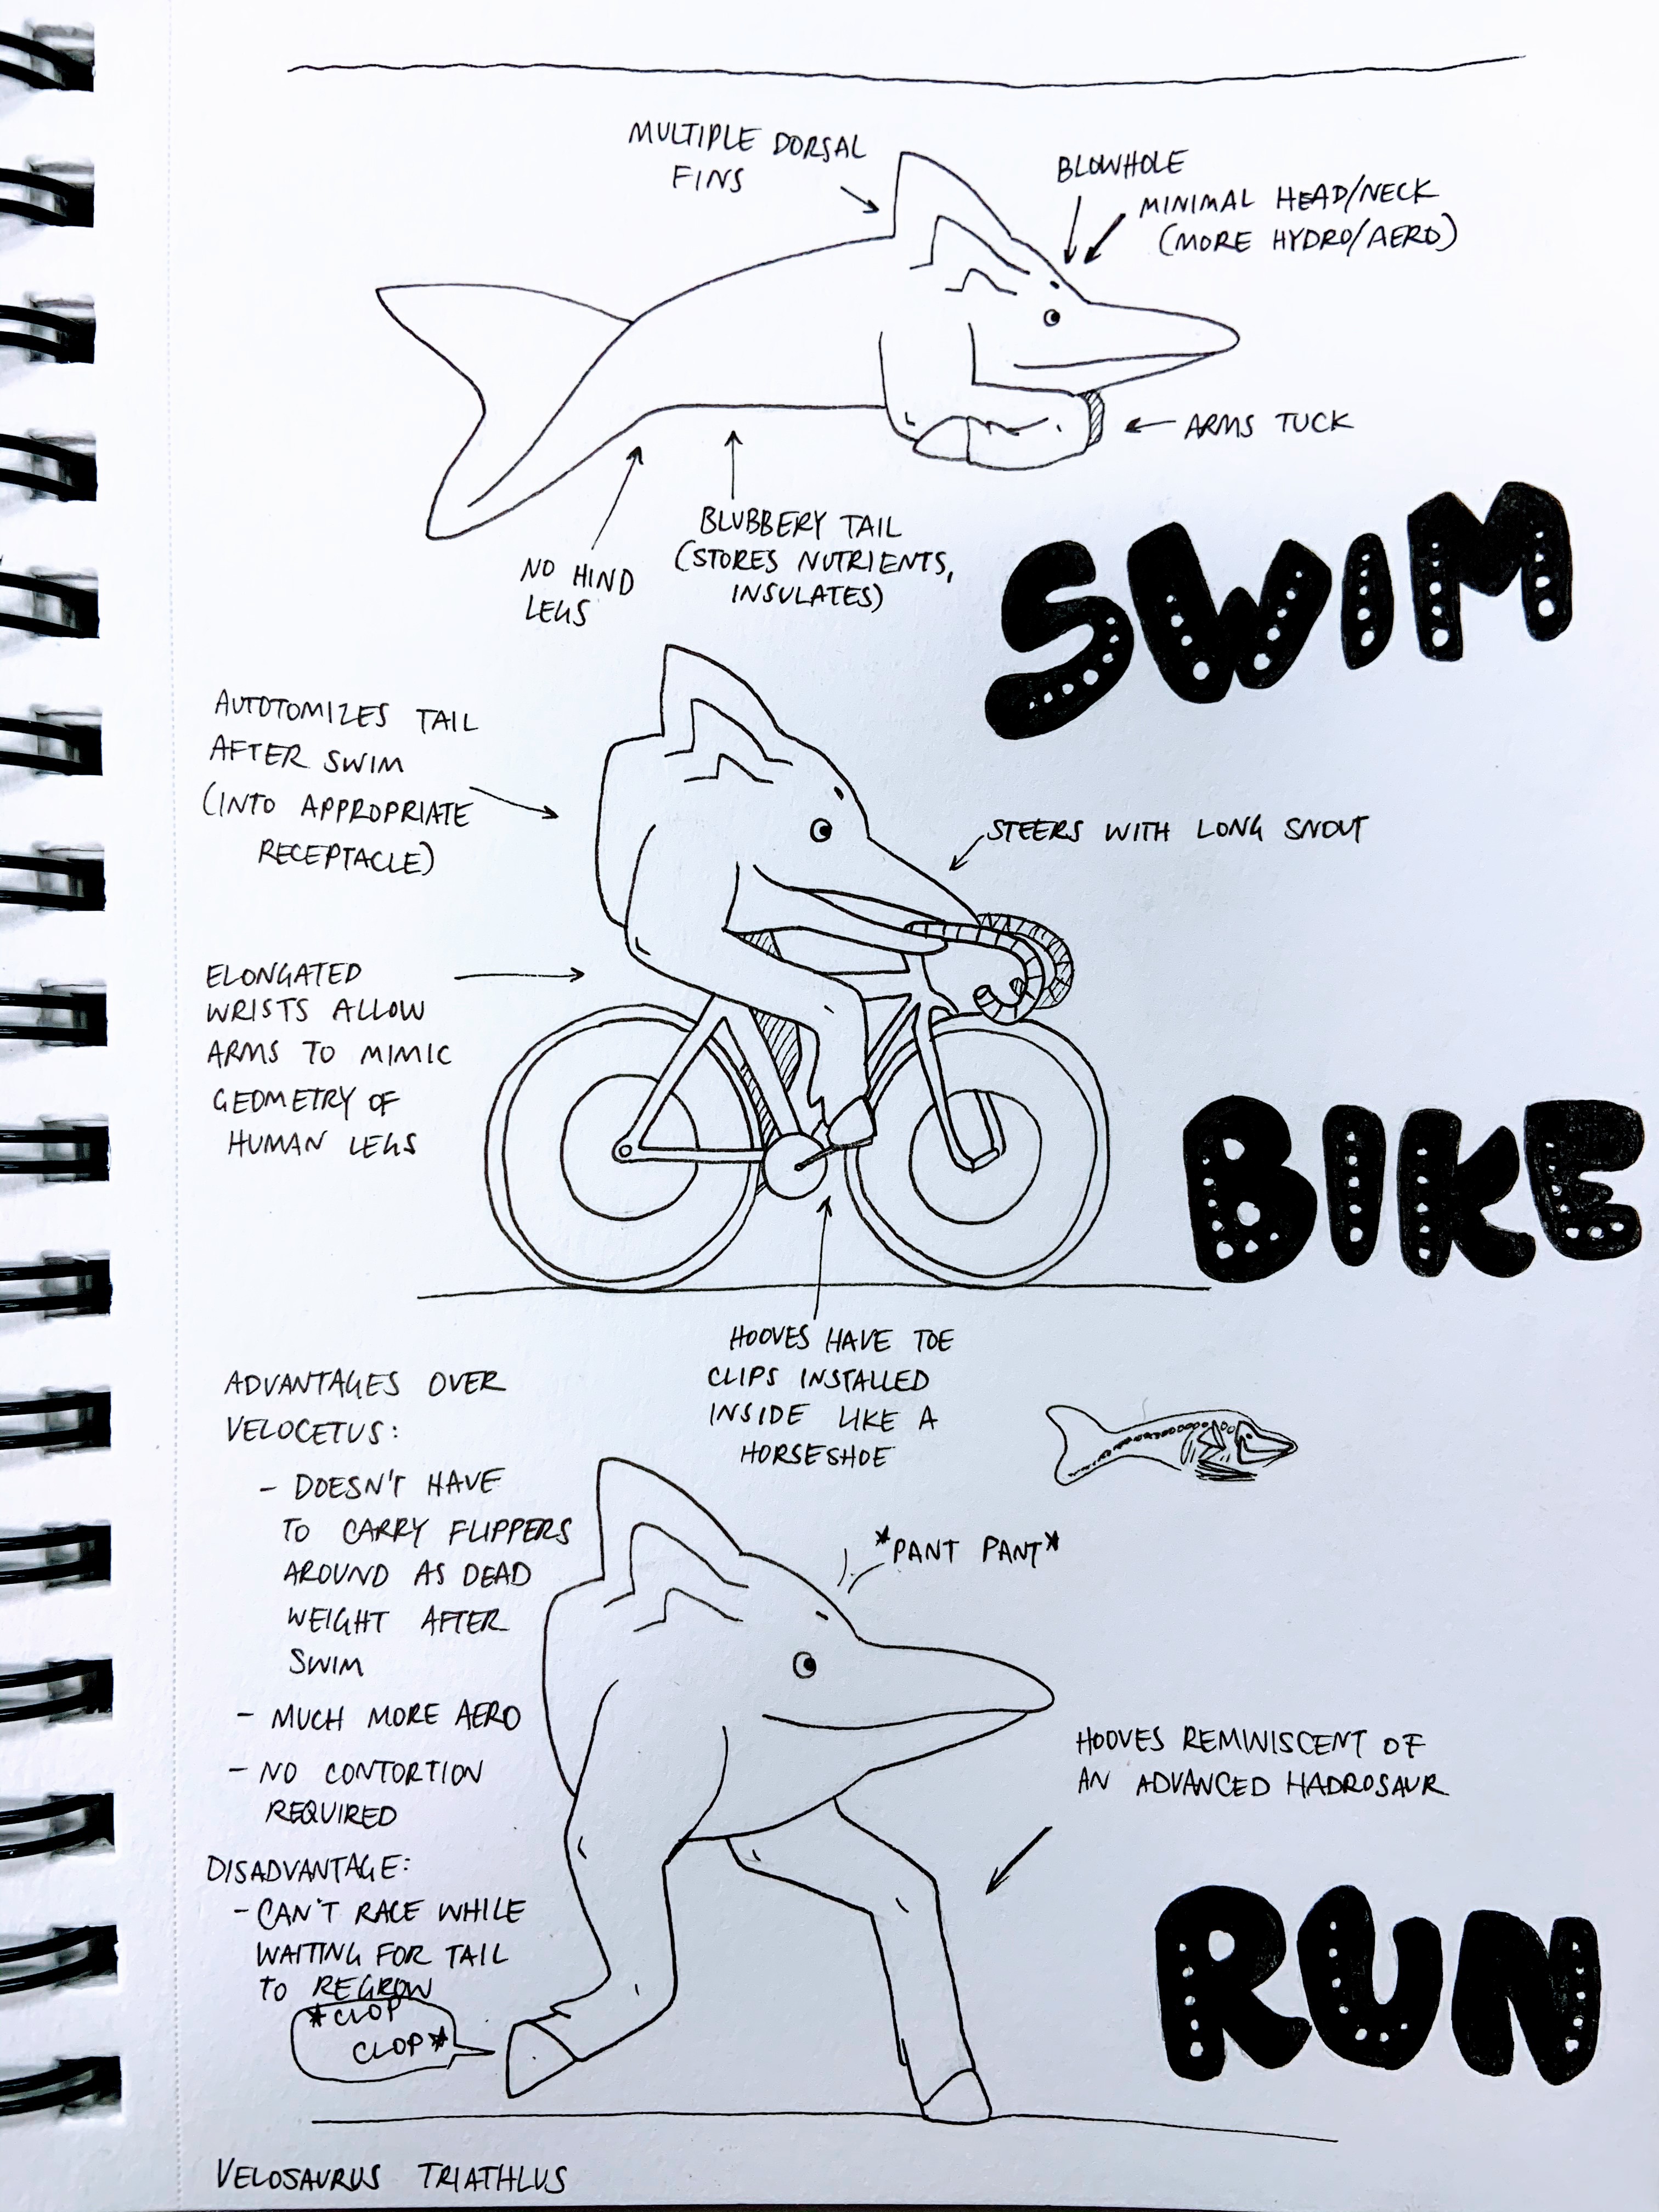 MULTIPLE DORSAL
FINS
BLOWHOLE
MINIMAL HEAD/NECK
(MORE HYDRO/AERO)
ARMS TUCK
BLUBBERY TAIL
(STORES NUTRIENTS,
INSULATES)
NO HIND
LEGS
SWIM
AUTOTOMIZES TAIL
AFTER SWIM
(INTO APPROPRIATE
RECEPTACLE)
STEERS WITH LONG SNOUT
ELONGATED
WRISTS ALLOW
ARMS TO MIMIC
GEOMETRY OF
HUMAN LEGS
BIKE
HOOVES HAVE TOE
CLIPS INSTALLED
INSIDE LIKE A
HORSESHOE
ADVANTAGES OVER
VELOCETUS:
- DOESN'T HAVE
TO CARRY FLIPPERS
AROUND AS DEAD
WEIGHT AFTER
SWIM
- MUCH MORE AERO
- NO CONTORTION
REQUIRED
DISADVANTAGE:
- CAN'T RACE WHILE
WAITING FOR TAIL
TO REGROW
*PANT PANT*
HOOVES REMINISCENT OF
AN ADVANCED HADROSAUR
RUN
*CLOP
CLOP*
VELOSAURUS TRIATHLUS